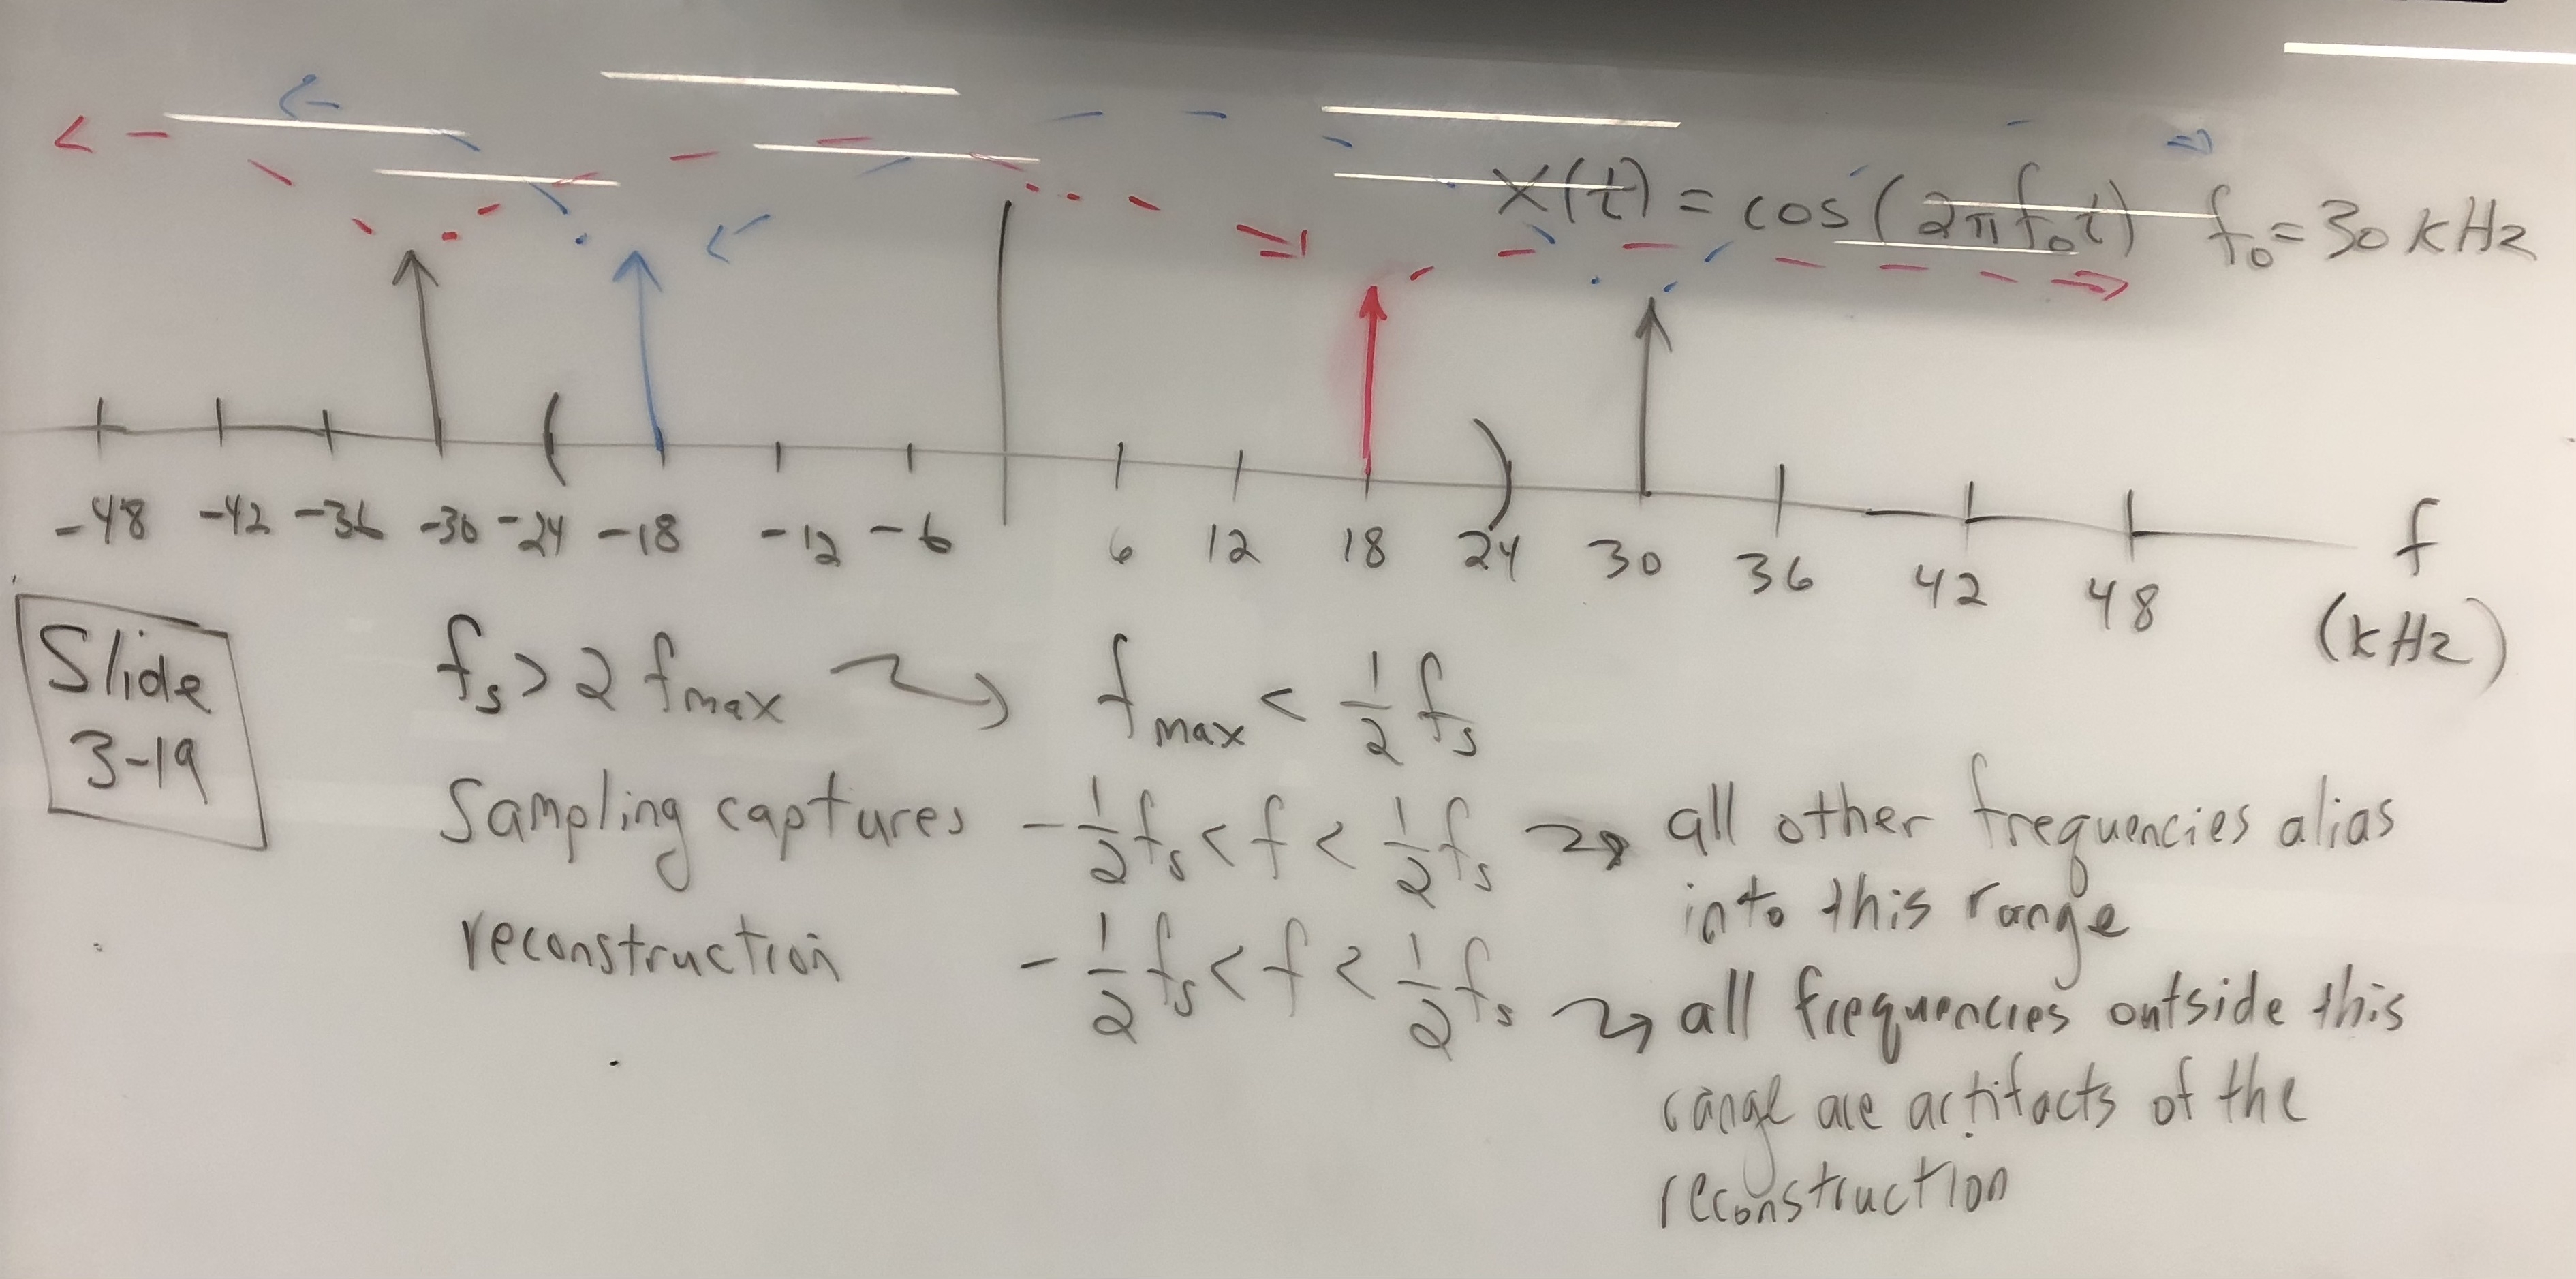 x(t) = cos(2πf₀t) f₀ = 30 kHz
-48 -42 -36 -30 -24 -18 -12 -6 6 12 18 24 30 36 42 48 f
(kHz)
Slide
3-19
fₛ > 2 fmax fmax < 1/2 fₛ
Sampling captures -1/2 fₛ < f < 1/2 fₛ all other frequencies alias
into this range
reconstruction -1/2 fₛ < f < 1/2 fₛ all frequencies outside this
range are artifacts of the
reconstruction